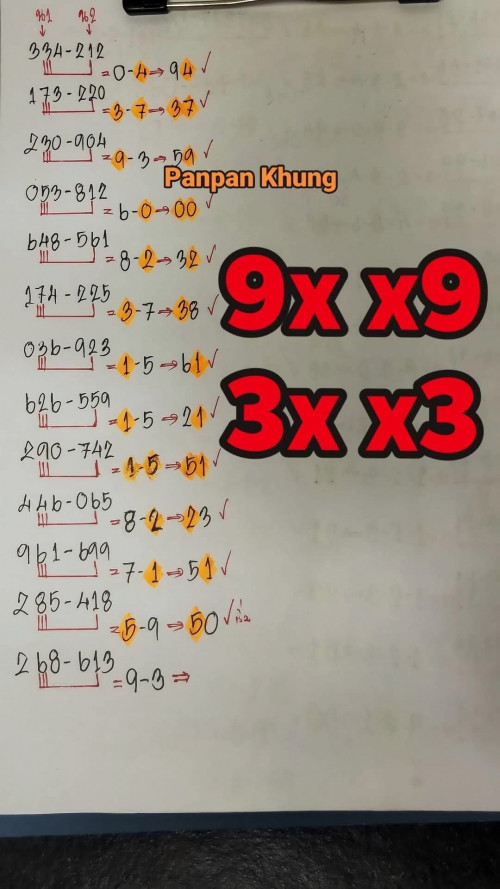 334-212 = 0-4⇒94 ✓
173-220 = 3-7⇒37 ✓
230-904 = 9-3⇒59 ✓
Panpan Khung
053-812 = 6-0⇒00 ✓
648-561 = 8-2⇒32 ✓
9x x9
174-225 = 3-7⇒38 ✓
036-923 = 1-5⇒61 ✓
3x x3
626-559 = 1-5⇒21 ✓
290-742 = 1-5⇒51 ✓
446-065 = 8-2⇒23 ✓
961-699 = 7-1⇒51 ✓
285-418 = 5-9⇒50 ✓
268-613 = 9-3⇒